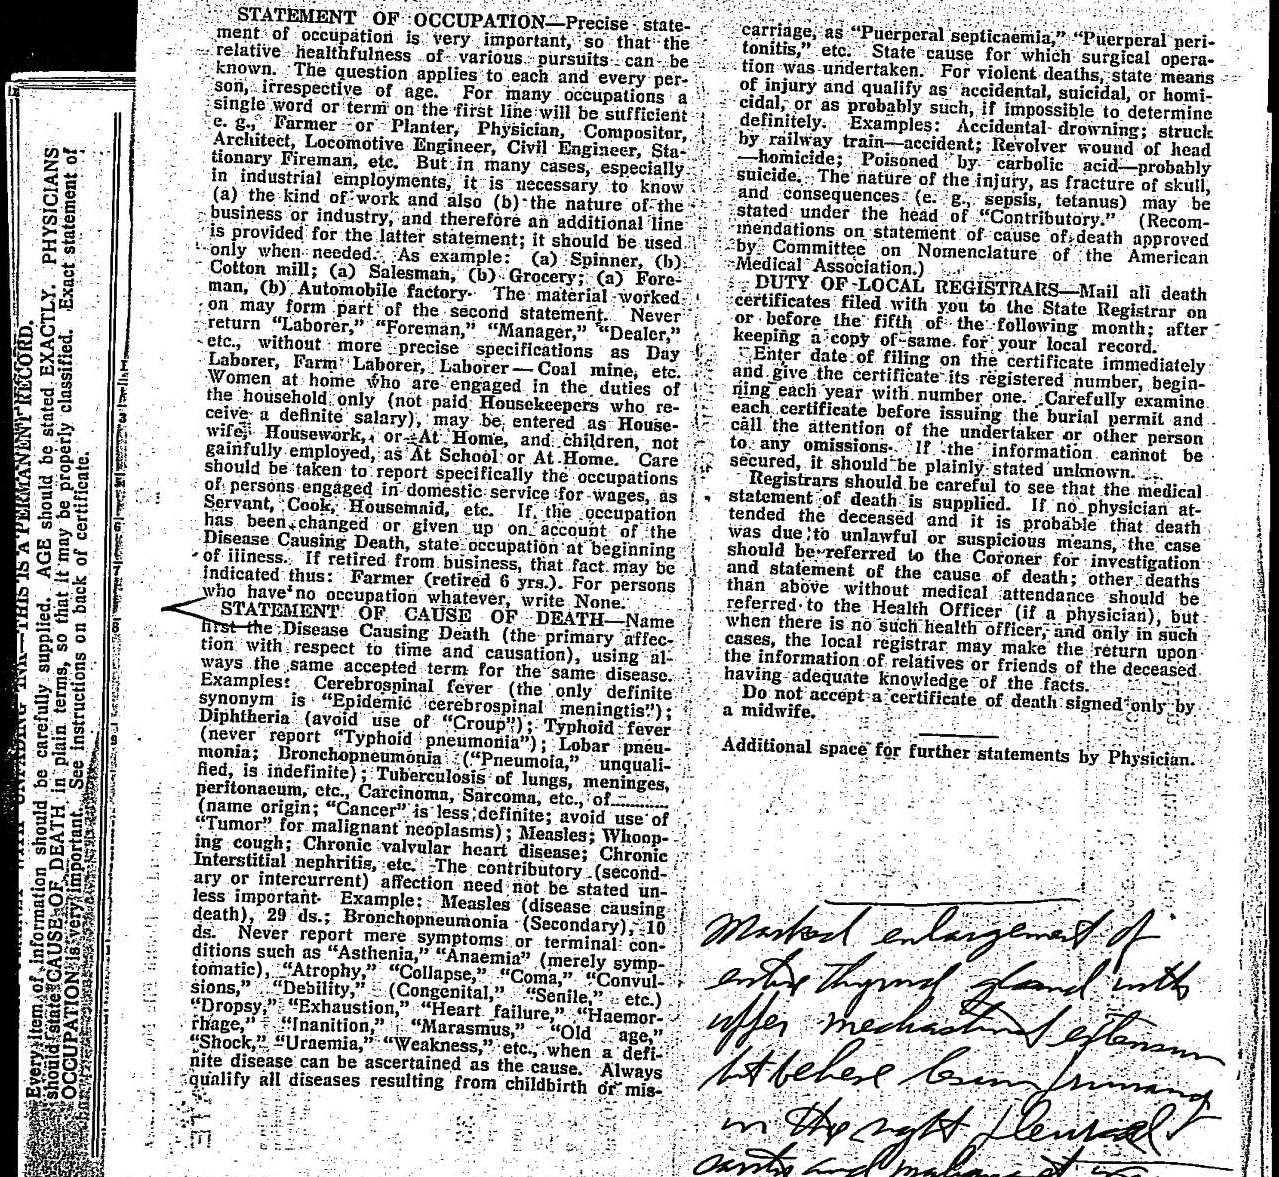 STATEMENT OF OCCUPATION—Precise state-
ment of occupation is very important, so that the
relative healthfulness of various pursuits can be
known. The question applies to each and every per-
son, irrespective of age. For many occupations a
single word or term on the first line will be sufficient
e. g., Farmer or Planter, Physician, Compositor,
Architect, Locomotive Engineer, Civil Engineer, Sta-
tionary Fireman, etc. But in many cases, especially
in industrial employments, it is necessary to know
(a) the kind of work and also (b) the nature of the
business or industry, and therefore an additional line
is provided for the latter statement; it should be used
only when needed. As example: (a) Spinner, (b)
Cotton mill; (a) Salesman, (b) Grocery; (a) Fore-
man, (b) Automobile factory. The material worked
on may form part of the second statement. Never
return "Laborer," "Foreman," "Manager," "Dealer,"
etc., without more precise specifications as Day
Laborer, Farm Laborer, Laborer—Coal mine, etc.
Women at home who are engaged in the duties of
the household only (not paid Housekeepers who re-
ceive a definite salary), may be entered as House-
wife, Housework, or At Home, and children, not
gainfully employed, as At School or At Home. Care
should be taken to report specifically the occupations
of persons engaged in domestic service for wages, as
Servant, Cook, Housemaid, etc. If the occupation
has been changed or given up on account of the
Disease Causing Death, state occupation at beginning
of illness. If retired from business, that fact may be
indicated thus: Farmer (retired 6 yrs.). For persons
who have no occupation whatever, write None.
STATEMENT OF CAUSE OF DEATH—Name
first the Disease Causing Death (the primary affec-
tion with respect to time and causation), using al-
ways the same accepted term for the same disease.
Examples: Cerebrospinal fever (the only definite
synonym is "Epidemic cerebrospinal meningtis");
Diphtheria (avoid use of "Croup"); Typhoid fever
(never report "Typhoid pneumonia"); Lobar pneu-
monia; Bronchopneumonia ("Pneumoia," unquali-
fied, is indefinite); Tuberculosis of lungs, meninges,
peritonaeum, etc., Carcinoma, Sarcoma, etc., of
(name origin; "Cancer" is less definite; avoid use of
"Tumor" for malignant neoplasms); Measles; Whoop-
ing cough; Chronic valvular heart disease; Chronic
Interstitial nephritis, etc. The contributory (second-
ary or intercurrent) affection need not be stated un-
less important. Example: Measles (disease causing
death), 29 ds.; Bronchopneumonia (Secondary), 10
ds. Never report mere symptoms or terminal con-
ditions such as "Asthenia," "Anaemia" (merely symp-
tomatic), "Atrophy," "Collapse," "Coma," "Convul-
sions," "Debility," (Congenital," "Senile," etc.)
"Dropsy," "Exhaustion," "Heart failure," "Haemor-
rhage," "Inanition," "Marasmus," "Old age,"
"Shock," "Uraemia," "Weakness," etc., when a defi-
nite disease can be ascertained as the cause. Always
qualify all diseases resulting from childbirth or mis-
carriage, as "Puerperal septicaemia," "Puerperal peri-
tonitis," etc. State cause for which surgical opera-
tion was undertaken. For violent deaths, state means
of injury and qualify as accidental, suicidal, or homi-
cidal, or as probably such, if impossible to determine
definitely. Examples: Accidental drowning; struck
by railway train—accident; Revolver wound of head
—homicide; Poisoned by carbolic acid—probably
suicide. The nature of the injury, as fracture of skull,
and consequences (e. g., sepsis, tetanus) may be
stated under the head of "Contributory." (Recom-
mendations on statement of cause of death approved
by Committee on Nomenclature of the American
Medical Association.)
DUTY OF LOCAL REGISTRARS—Mail all death
certificates filed with you to the State Registrar on
or before the fifth of the following month; after
keeping a copy of same for your local record.
Enter date of filing on the certificate immediately
and give the certificate its registered number, begin-
ning each year with number one. Carefully examine
each certificate before issuing the burial permit and
call the attention of the undertaker or other person
to any omissions. If the information cannot be
secured, it should be plainly stated unknown.
Registrars should be careful to see that the medical
statement of death is supplied. If no physician at-
tended the deceased and it is probable that death
was due to unlawful or suspicious means, the case
should be referred to the Coroner for investigation
and statement of the cause of death; other deaths
than above without medical attendance should be
referred to the Health Officer (if a physician), but
when there is no such health officer, and only in such
cases, the local registrar may make the return upon
the information of relatives or friends of the deceased
having adequate knowledge of the facts.
Do not accept a certificate of death signed only by
a midwife.
Additional space for further statements by Physician.
Marked enlargement of
entire thyroid gland with
upper mediastinal extension
but believe primary
in the right pleural
THIS IS A PERMANENT RECORD.
Every item of information should be carefully supplied. AGE should be stated EXACTLY. PHYSICIANS
should state CAUSE OF DEATH in plain terms, so that it may be properly classified. Exact statement of
OCCUPATION is very important. See instructions on back of certificate.